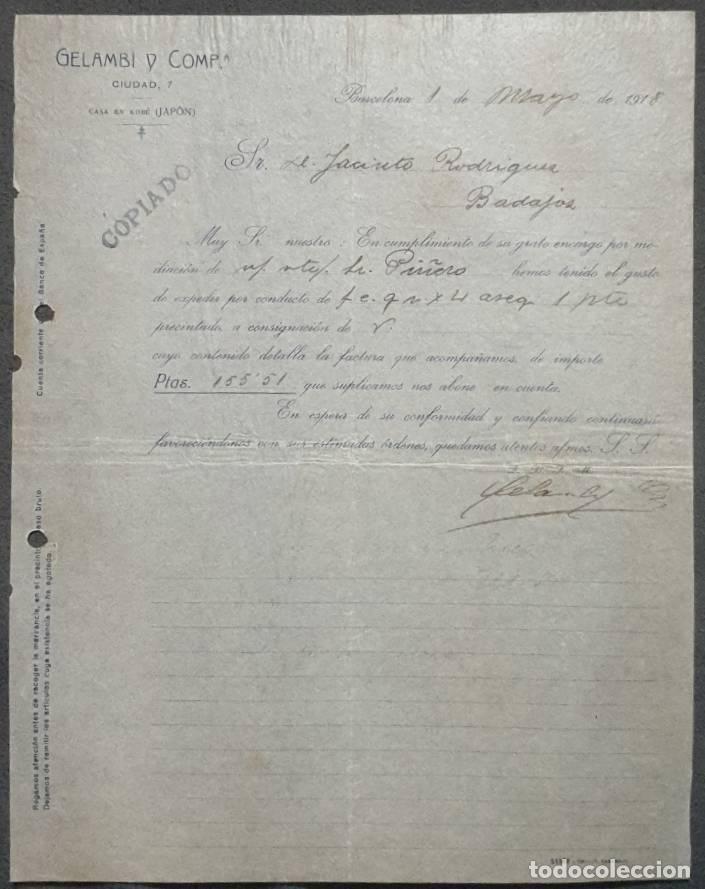 GELAMBÍ Y COMP.ª
CIUDAD, 7
CASA EN KOBÉ (JAPÓN)
Barcelona 1 de Mayo de 1918
Sr. D. Jacinto Rodriguez
Badajoz
COPIADO
Muy Sr. nuestro: En cumplimiento de su grato encargo por me-
diación de n/ Sr. Piñero hemos tenido el gusto
de expedir por conducto de f. c. 1
precintado, a consignación de V.
cuyo contenido detalla la factura que acompañamos, de importe
Ptas. 155'51 que suplicamos nos abone en cuenta.
En espera de su conformidad y confiando continuará
favoreciéndonos con sus estimadas órdenes, quedamos atentos afmos. S. S.
Gelambí
Cuenta corriente Banco de España
Rogamos atención antes de recoger la mercancía, en el precinto peso bruto
Dejamos de remitir los artículos cuya existencia se ha agotado.
todocoleccion